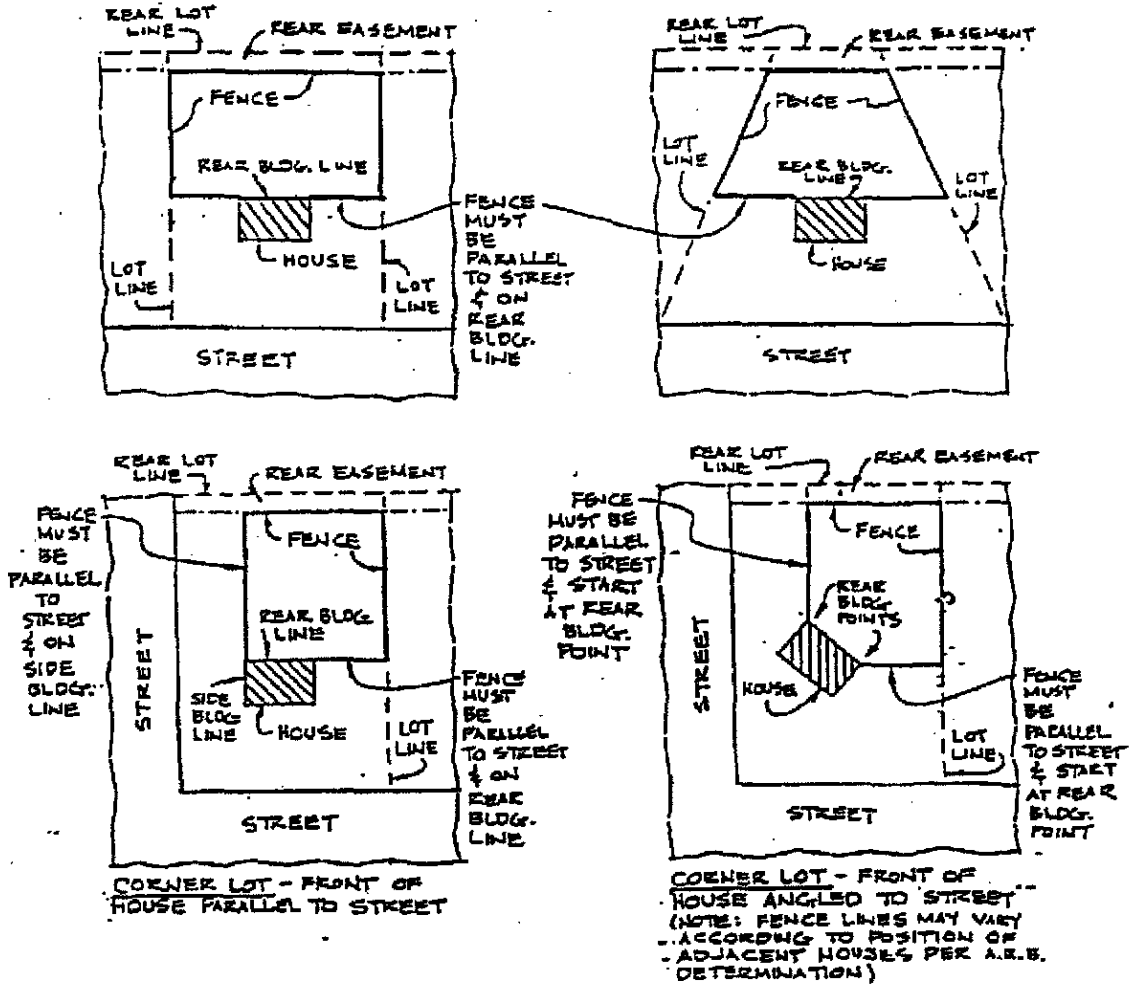 REAR LOT
LINE
REAR EASEMENT
FENCE
REAR BLDG. LINE
HOUSE
LOT
LINE
LOT
LINE
STREET
FENCE
MUST
BE
PARALLEL
TO STREET
& ON
REAR
BLDG.
LINE
REAR LOT
LINE
REAR EASEMENT
FENCE
LOT
LINE
REAR BLDG.
LINE
LOT
LINE
HOUSE
STREET
REAR LOT
LINE
REAR EASEMENT
FENCE
MUST
BE
PARALLEL
TO
STREET
& ON
SIDE
BLDG.
LINE
STREET
FENCE
REAR BLDG
LINE
SIDE
BLDG
LINE
HOUSE
LOT
LINE
FENCE
MUST
BE
PARALLEL
TO STREET
& ON
REAR
BLDG.
LINE
STREET
CORNER LOT - FRONT OF
HOUSE PARALLEL TO STREET
REAR LOT
LINE
REAR EASEMENT
FENCE
MUST BE
PARALLEL
TO STREET
& START
AT REAR
BLDG.
POINT
STREET
FENCE
REAR
BLDG
POINTS
HOUSE
FENCE
MUST
BE
PARALLEL
TO STREET
& START
AT REAR
BLDG.
POINT
LOT
LINE
STREET
CORNER LOT - FRONT OF
HOUSE ANGLED TO STREET
(NOTE: FENCE LINES MAY VARY
ACCORDING TO POSITION OF
ADJACENT HOUSES PER A.R.B.
DETERMINATION)